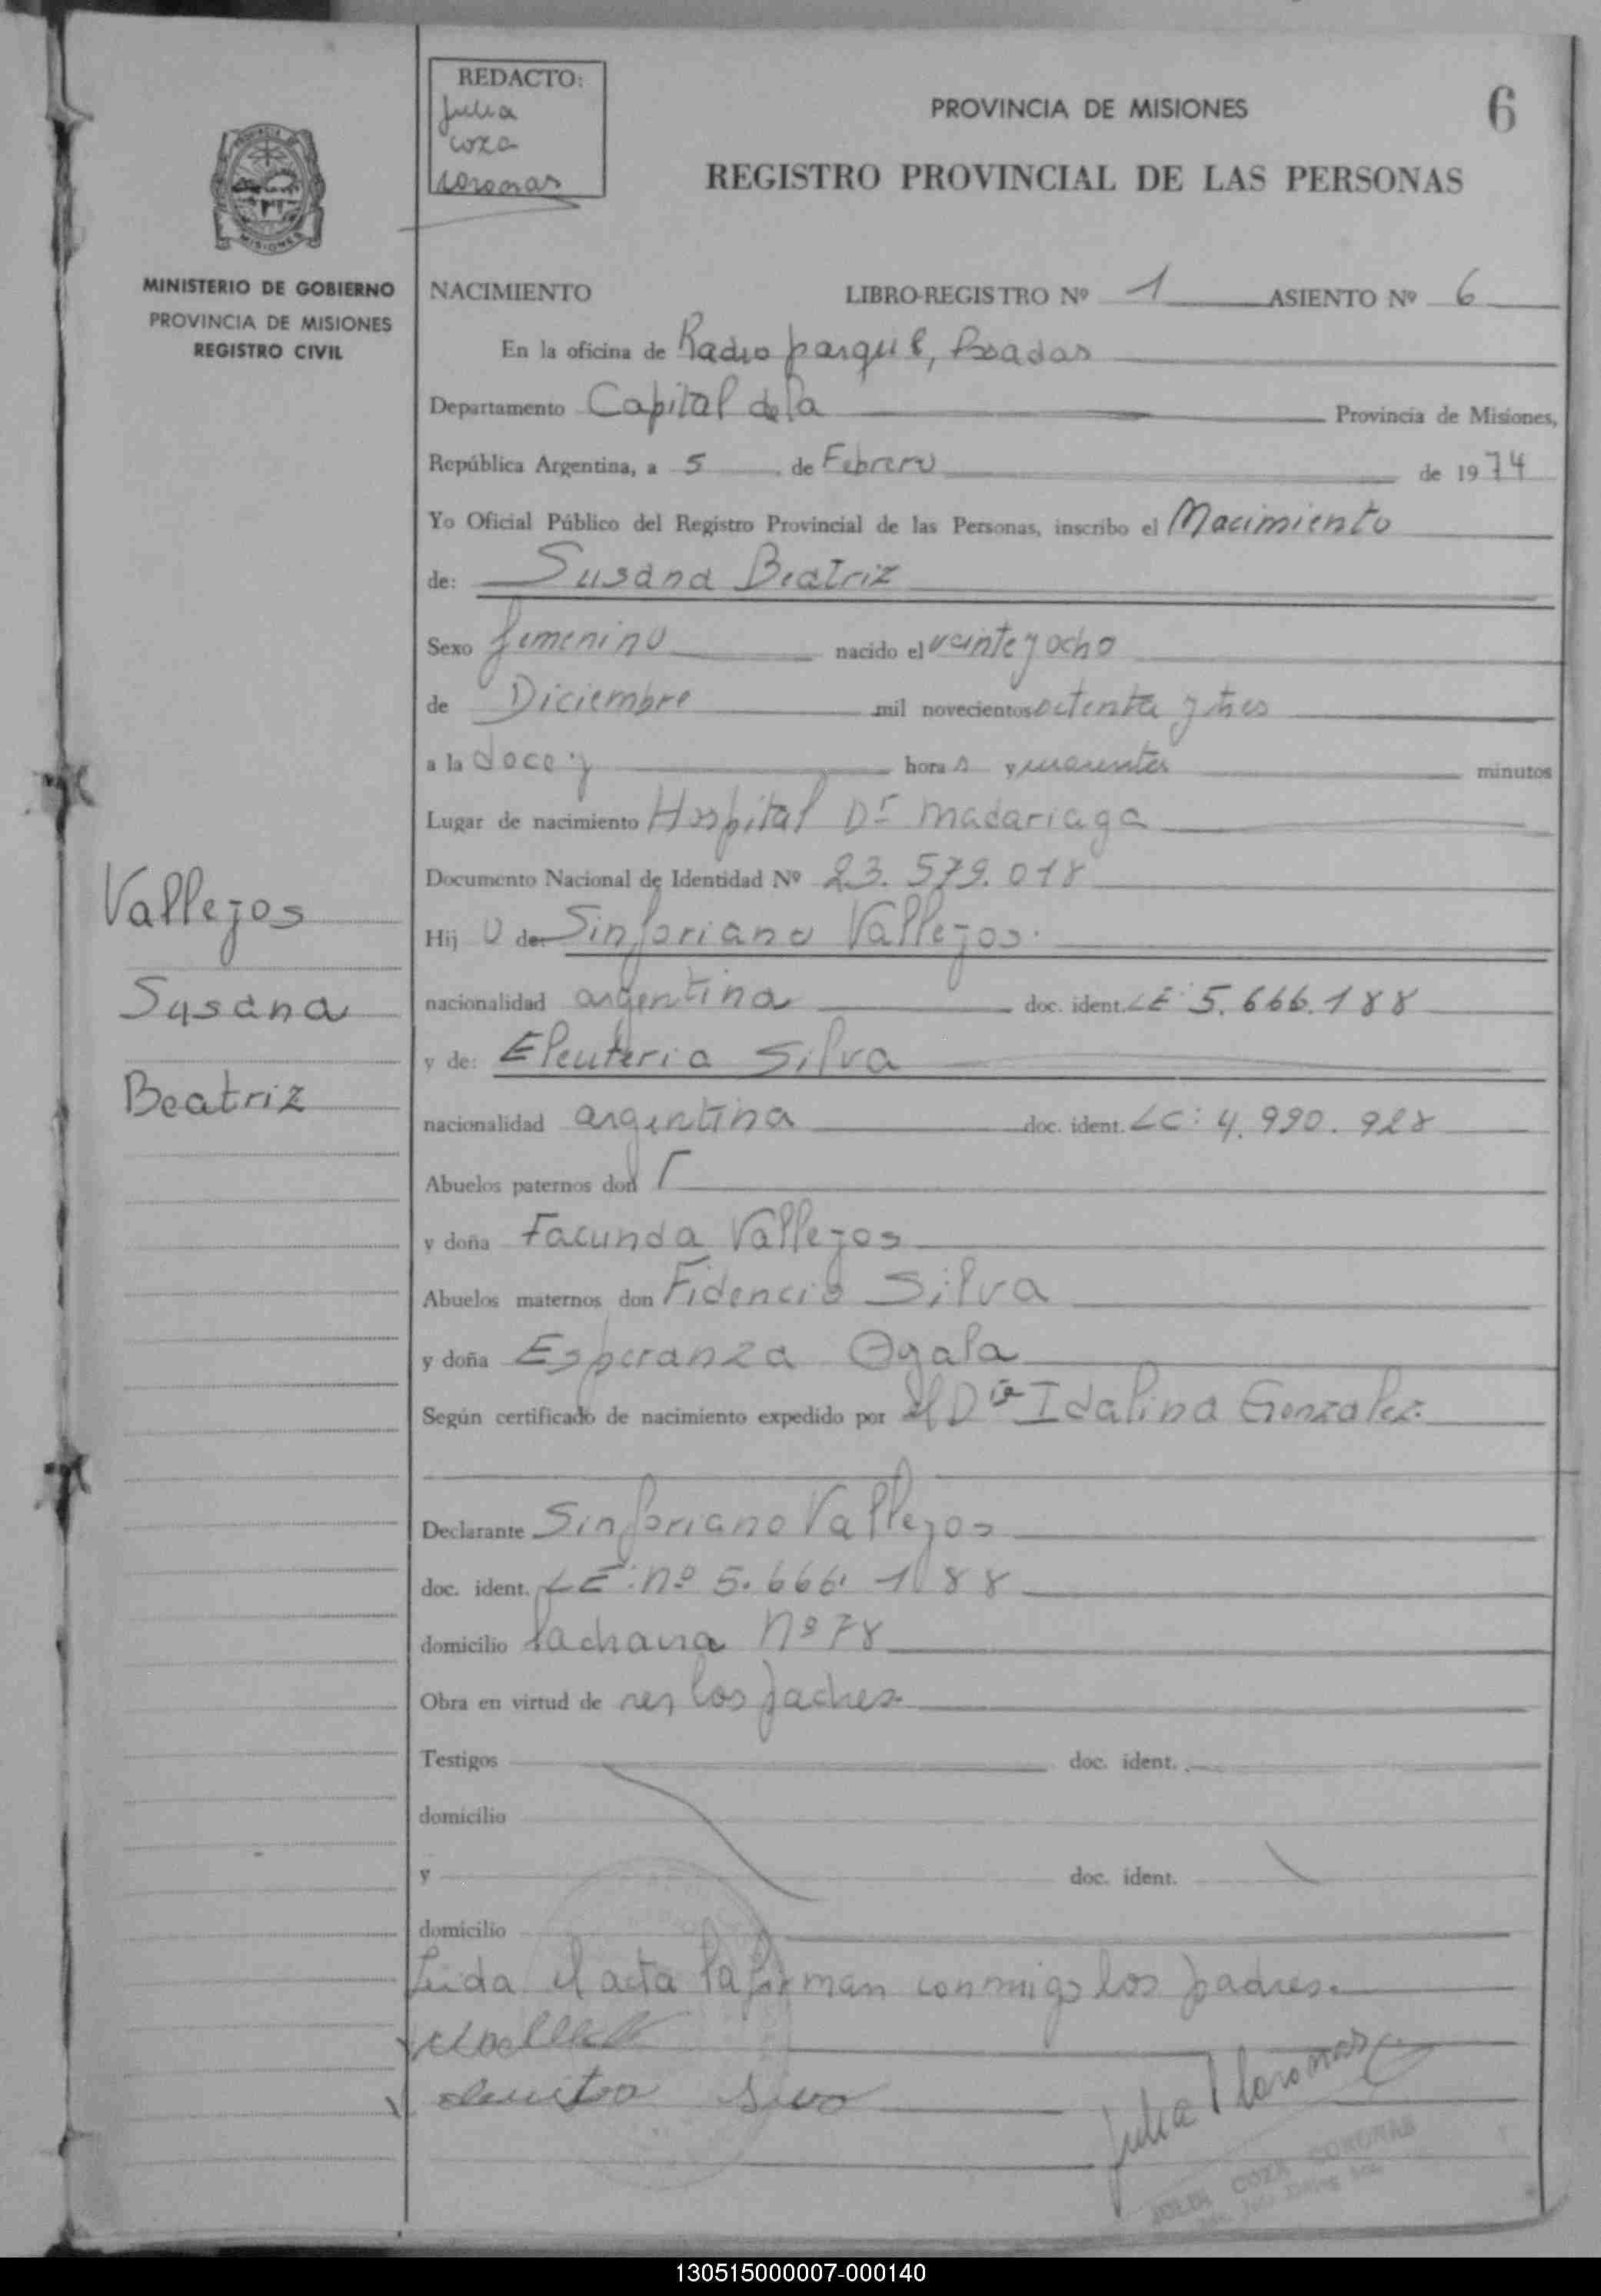 REDACTO:
Julia
coza
coronas
6
PROVINCIA DE MISIONES
REGISTRO PROVINCIAL DE LAS PERSONAS
PROVINCIA DE
MISIONES
MINISTERIO DE GOBIERNO
PROVINCIA DE MISIONES
REGISTRO CIVIL
NACIMIENTO LIBRO-REGISTRO Nº 1 ASIENTO Nº 6
En la oficina de Radio parque, Posadas
Departamento Capital de la Provincia de Misiones,
República Argentina, a 5 de Febrero de 1974
Yo Oficial Público del Registro Provincial de las Personas, inscribo el Nacimiento
de: Susana Beatriz
Sexo femenino nacido el veinte y ocho
de Diciembre mil novecientos setenta y tres
a la doce y hora s y cuarenta minutos
Lugar de nacimiento Hospital Dr Madariaga
Documento Nacional de Identidad Nº 23.579.018
Hij o de: Sinforiano Vallejos.
nacionalidad argentina doc. ident. LE: 5.666.188
y de: Eleuteria Silva
nacionalidad argentina doc. ident. LC: 4.990.928
Abuelos paternos don
y doña Facunda Vallejos
Abuelos maternos don Fidencio Silva
y doña Esperanza Ogala
Según certificado de nacimiento expedido por el Dra Idalina Gonzalez.
Declarante Sinforiano Vallejos
doc. ident. LE: nº 5.666.188
domicilio Nº 78
Obra en virtud de ser los padres
Testigos doc. ident.
domicilio
y doc. ident.
domicilio
Leida el acta la firman conmigo los padres.
Julia Coronas
JULIA COZA CORONAS
Vallejos
Susana
Beatriz
130515000007-000140